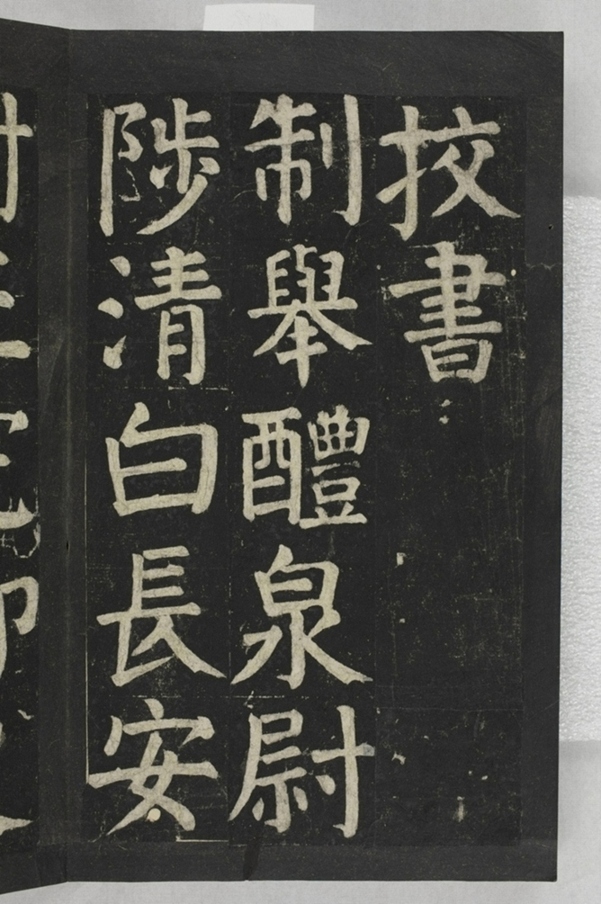 挍書
制舉醴泉尉
陟清白長安